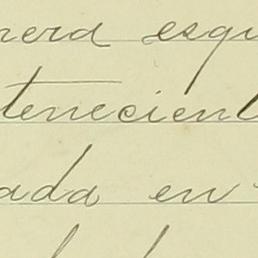 nera esqu
tenecient
ada en